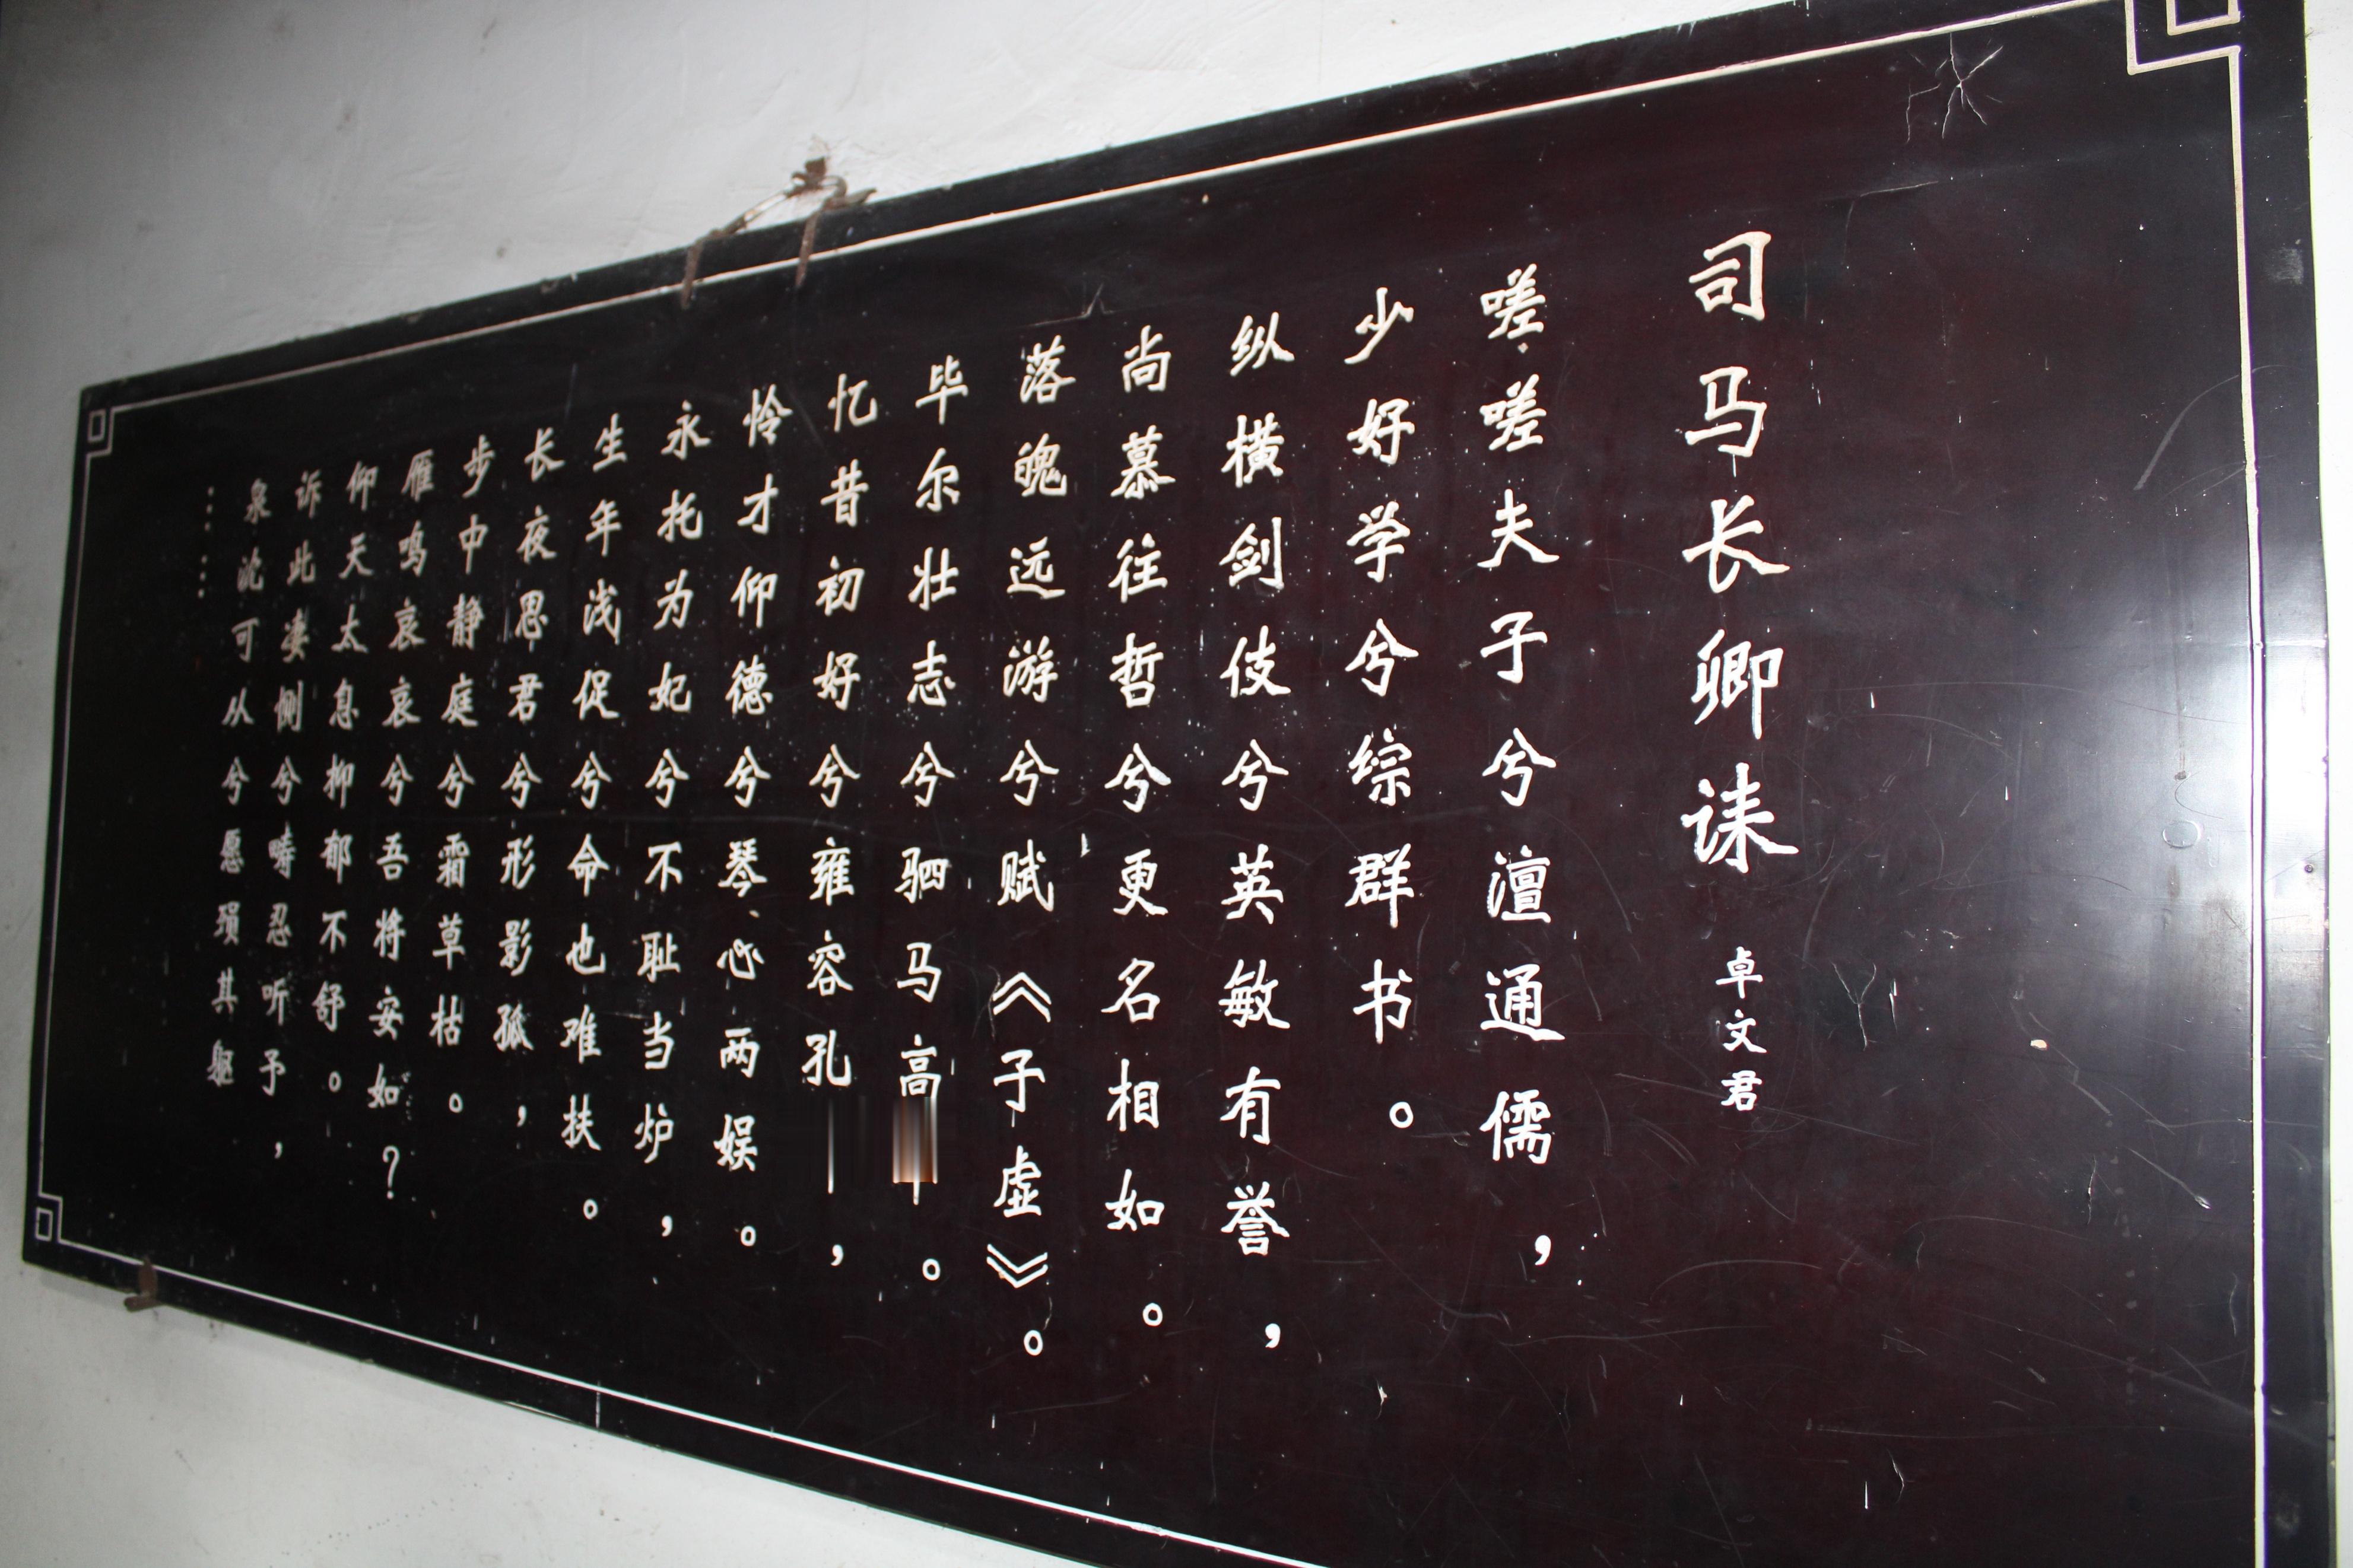 司马长卿诔 卓文君
嗟嗟夫子兮澶通儒，
少好学兮综群书。
纵横剑伎兮英敏有誉，
尚慕往哲兮更名相如。
落魄远游兮赋《子虚》。
毕尔壮志兮驷马高。
忆昔初好兮雍容孔，
怜才仰德兮琴心两娱。
永托为妃兮不耻当炉，
生年浅促兮命也难扶。
长夜思君兮形影孤，
步中静庭兮霜草枯。
雁鸣哀哀兮吾将安如？
仰天太息抑郁不舒。
诉此凄恻兮畴忍听予，
泉沈可从兮愿殒其躯
……